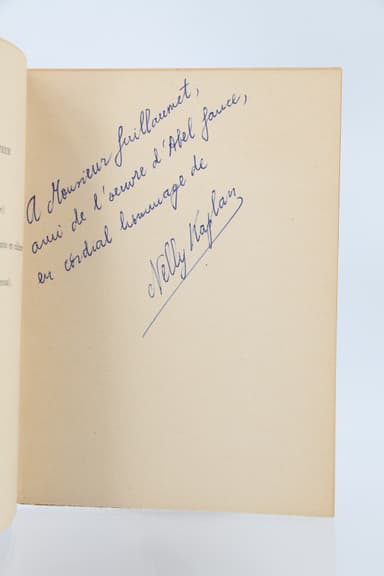 A Monsieur Guillaumet,
ami de l'oeuvre d'Abel Gance,
en cordial hommage de
Nelly Kaplan